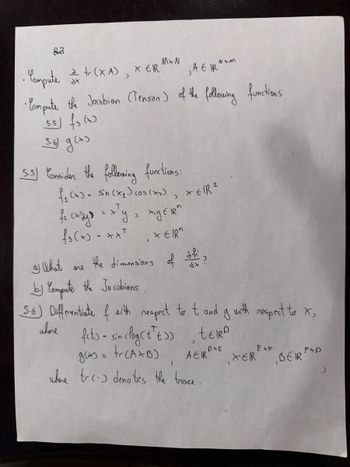 83
· Compute ∂/∂x tr(XA), X ∈ ℝ^{M×N}, A ∈ ℝ^{N×M}
· Compute the Jacobian (Tensor) of the following functions
5.5] f₃(x)
5.6] g(x)
5.5] Consider the following functions:
f₁(x) = sin(x₁) cos(x₂), x ∈ ℝ²
f₂(x,y) = xᵀy, x,y ∈ ℝⁿ
f₃(x) = xxᵀ, x ∈ ℝⁿ
a) What are the dimensions of ∂fᵢ/∂x ?
b) Compute the Jacobians.
5.6] Differentiate f with respect to t and g with respect to X,
where
f(t) = sin(log(tᵀt)), t ∈ ℝ^D
g(x) = tr(AXB), A ∈ ℝ^{D×E}, X ∈ ℝ^{E×F}, B ∈ ℝ^{F×D},
where tr(·) denotes the trace.